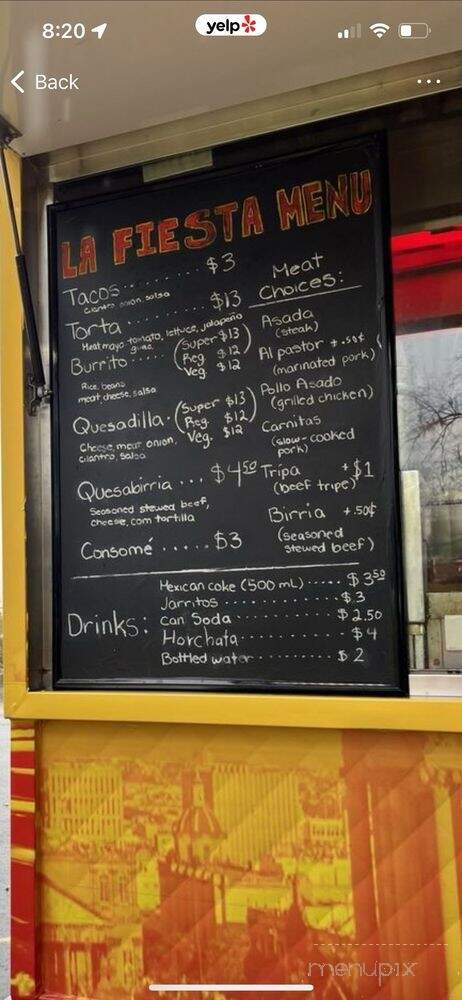 8:20
yelp
Back
LA FIESTA MENU
Tacos ........ $3
cilantro, onion, salsa
Torta ........ $13
Meat, mayo, tomato, lettuce, jalapeño
guac.
Burrito ..... (Super $13)
Reg. $12
Veg. $12
Rice, beans
meat, cheese, salsa
Quesadilla. (Super $13)
Reg. $12
Veg. $12
Cheese, meat, onion,
cilantro, salsa
Quesabirria ... $4.50
Seasoned stewed beef,
cheese, corn tortilla
Consomé ..... $3
Meat
Choices:
Asada
(steak)
Al pastor +.50¢
(marinated pork)
Pollo Asado
(grilled chicken)
Carnitas
(slow-cooked
pork)
Tripa +$1
(beef tripe)
Birria +.50¢
(seasoned
stewed beef)
Drinks:
Mexican coke (500 mL) ..... $3.50
Jarritos ............ $3
can Soda ........... $2.50
Horchata ........... $4
Bottled water ............ $2
menupix